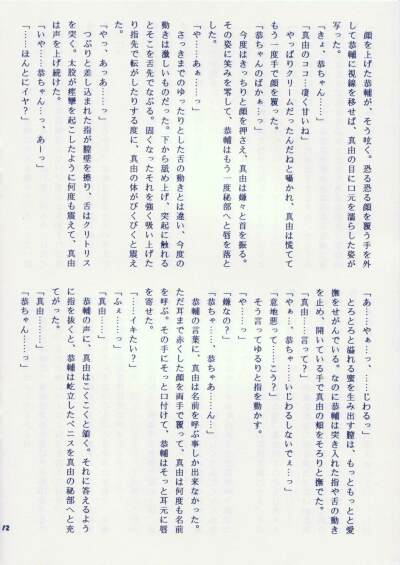 顔を上げた恭輔が、そう呟く。恐る恐る顔を覆う手を外
して恭輔に視線を移せば、真由の目に口元を濡らした姿が
写った。
「きょ、恭ちゃん……っ」
「真由のココ…凄く甘いね」
やっぱりクリームだったんだねと囁かれ、真由は慌てて
もう一度手で顔を覆った。
「恭ちゃんのばかぁ…っ」
今度はきっちりと顔を押さえ、真由は嫌々と首を振る。
その姿に笑みを零して、恭輔はもう一度秘部へと唇を落と
した。
「や……あぁ……っ」
さっきまでのゆったりとした舌の動きとは違い、今度の
動きは激しいものだった。下から舐め上げ、突起に触れる
とそこを舌先でなぶる。固くなったそれを強く吸い上げた
り指先で転がしたりする度に、真由の体がびくびくと震え
た。
「やっ、あっあ……っ」
つぷりと差し込まれた指が膣壁を擦り、舌はクリトリス
を突く。太股が痙攣を起こしたように何度も震えて、真由
は声を上げ続けた。
「いや……恭ちゃん…っ、あーっ」
「……ほんとにイヤ？」
「あ……やぁ…っ、……じわるっ」
とろとろと溢れる蜜を生み出す膣は、もっともっとと愛
撫をせがんでいる。なのに恭輔は突き入れた指や舌の動き
を止め、開いている手で真由の頬をそろりと撫でた。
「真由……言って？」
「やぁ…、恭ちゃ……いじわるしないでぇ…っ」
「意地悪って……こう？」
そう言ってゆるりと指を動かす。
「や……っ」
「嫌なの？」
「恭ちゃ……、恭ちゃあん…っ」
恭輔の言葉に、真由は名前を呼ぶ事しか出来なかった。
ただ耳まで赤くした顔を両手で覆って、真由は何度も名前
を呼ぶ。その手にそっと口付けて、恭輔はそっと耳元に唇
を寄せた。
「……イキたい？」
「ふぇ……っ」
「真由……」
恭輔の声に、真由はこくこくと頷く。それに答えるよう
に指を抜くと、恭輔は屹立したペニスを真由の秘部へと充
てがった。
「真由………」
「恭ちゃん……っ」
12